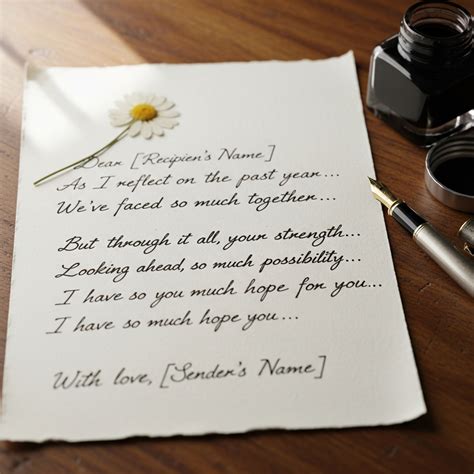 Dear [Recipien's Name]
As I reflect on the past year...
We've faced so much together...
But through it all, your strength...
Looking ahead, so much possibility...
I have so you much hope for you...
I have so much hope you...
With love, [Sender's Name]